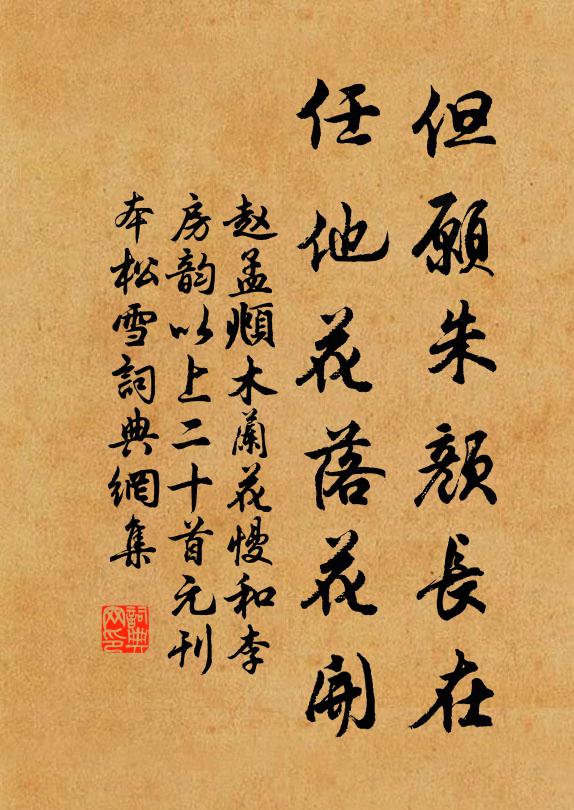 但願朱顏長在
任他花落花開
赵孟頫木蘭花慢和李
房韵以上二十首元刊
本松雪詞典網集
詞典网印